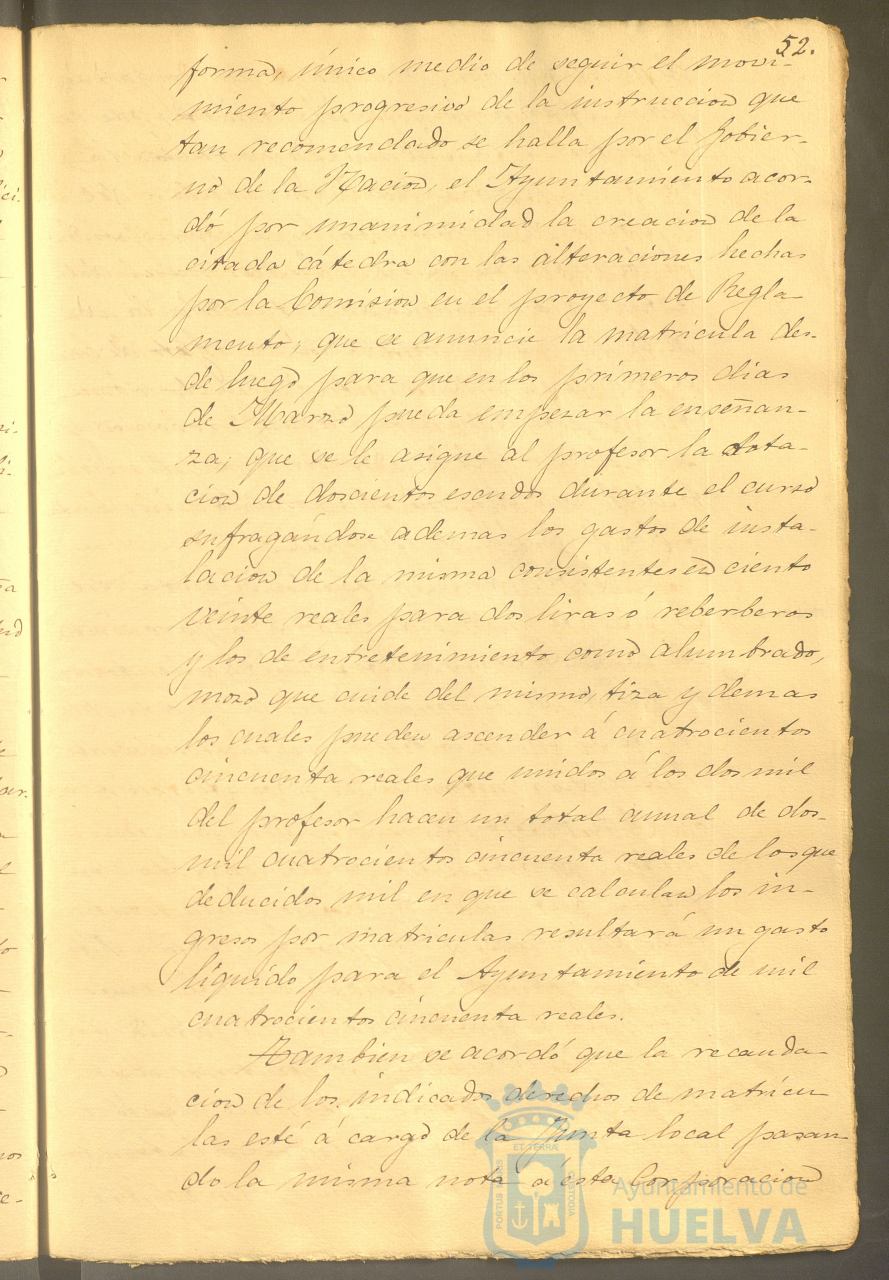 52.
forma, único medio de seguir el movi-
miento progresivo de la instruccion que
tan recomendado se halla por el Gobier-
no de la Nacion, el Ayuntamiento acor-
dó por unanimidad la creacion de la
citada cátedra con las alteraciones hechas
por la Comision en el proyecto de Regla-
mento; que se anuncie la matricula des-
de luego para que en los primeros dias
de Marzo pueda empezar la enseñan-
za; que se le asigue al profesor la dota-
cion de doscientos escudos durante el curso
sufragándose ademas los gastos de insta-
lacion de la misma consistentes en ciento
veinte reales para dos liras ó reberberos
y los de entretenimiento como alumbrado,
mozo que cuide del mismo, tiza y demas
los cuales pueden ascender á cuatrocientos
cincuenta reales que unidos á los dos mil
del profesor hacen un total anual de dos-
mil cuatrocientos cincuenta reales de los que
deducidos mil en que se calculan los in-
gresos por matriculas resultará un gasto
líquido para el Ayuntamiento de mil
cuatrocientos cincuenta reales.
Tambien se acordó que la recauda-
cion de los indicados derechos de matricu
las esté á cargo de la Junta local pasan-
do la misma nota á esta Corporacion
PORTUS MARIS
ET TERRÆ
CUSTODIA
Ayuntamiento de
HUELVA